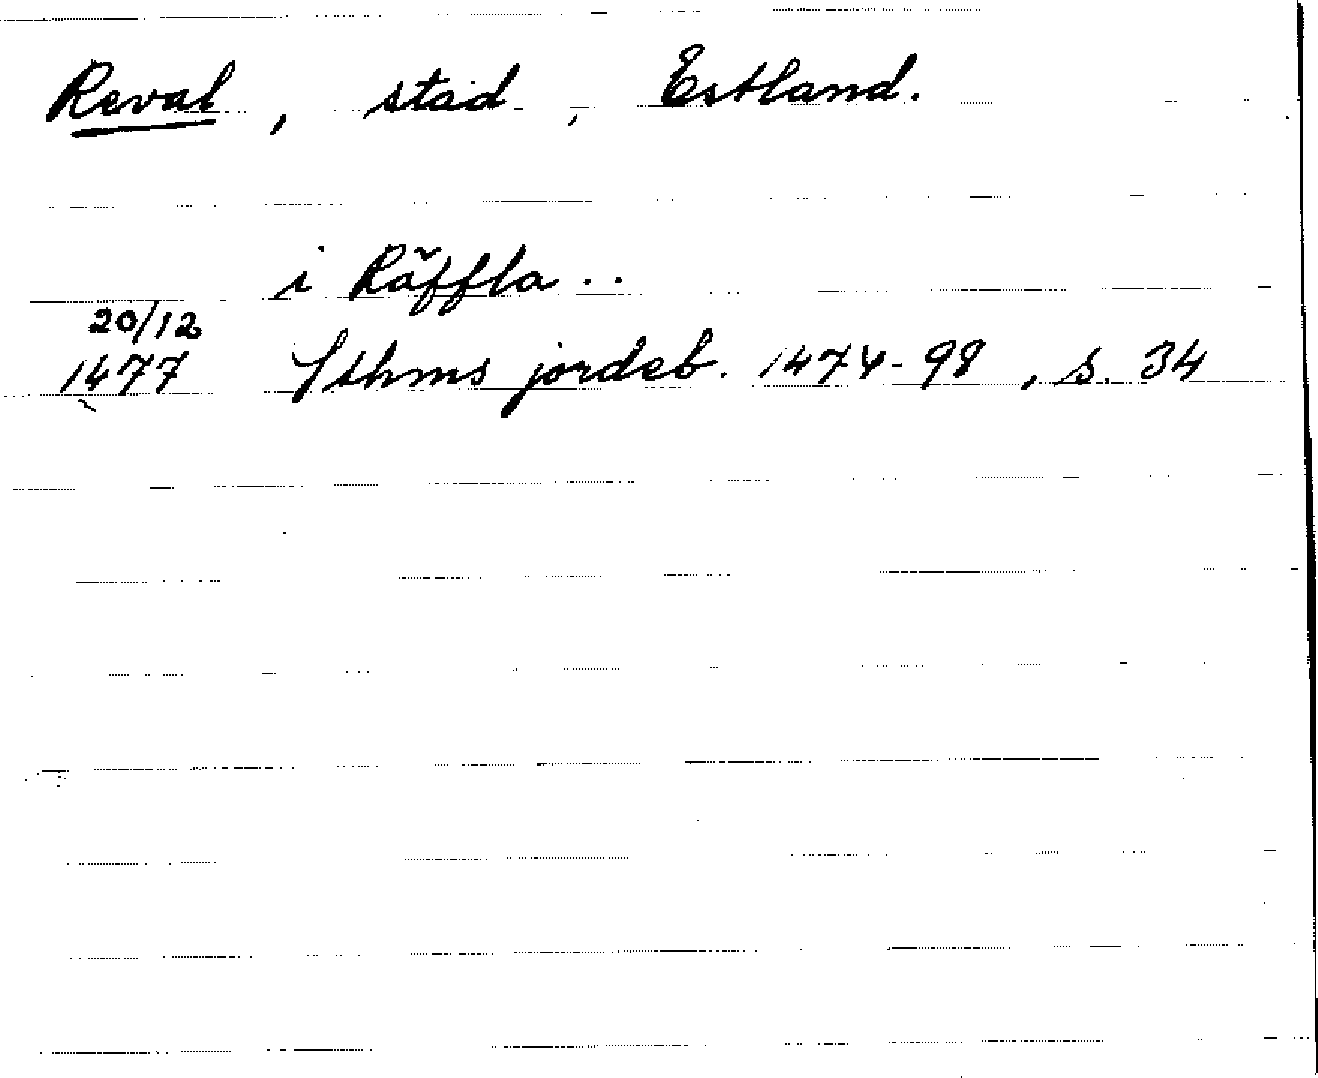 Reval, stad, Estland.
i Räffla..
20/12
1477 Sthms jordeb. 1474-98, s. 34